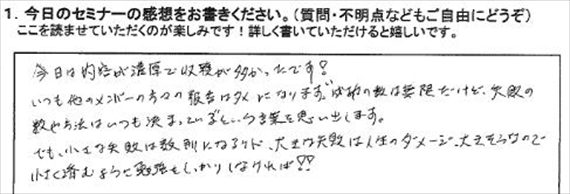 1. 今日のセミナーの感想をお書きください。(質問・不明点などもご自由にどうぞ)
ここを読ませていただくのが楽しみです!詳しく書いていただけると嬉しいです。
今日は内容が濃厚で収穫が多かったです!
いつも他のメンバーの方々の報告はタメになります。成功の数は無限だけど、失敗の
数や方法はいつも決まっているという言葉を思い出します。
でも、小さな失敗は教訓になるけど、大きな失敗は人生のダメージ、大きそうなので
小さく済むように勉強もしっかりしなければ!!